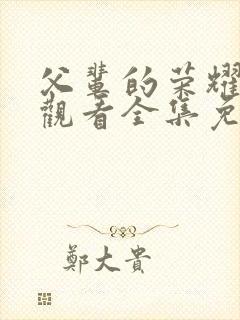 父輩的荣耀
觀看全集免
鄭大貴